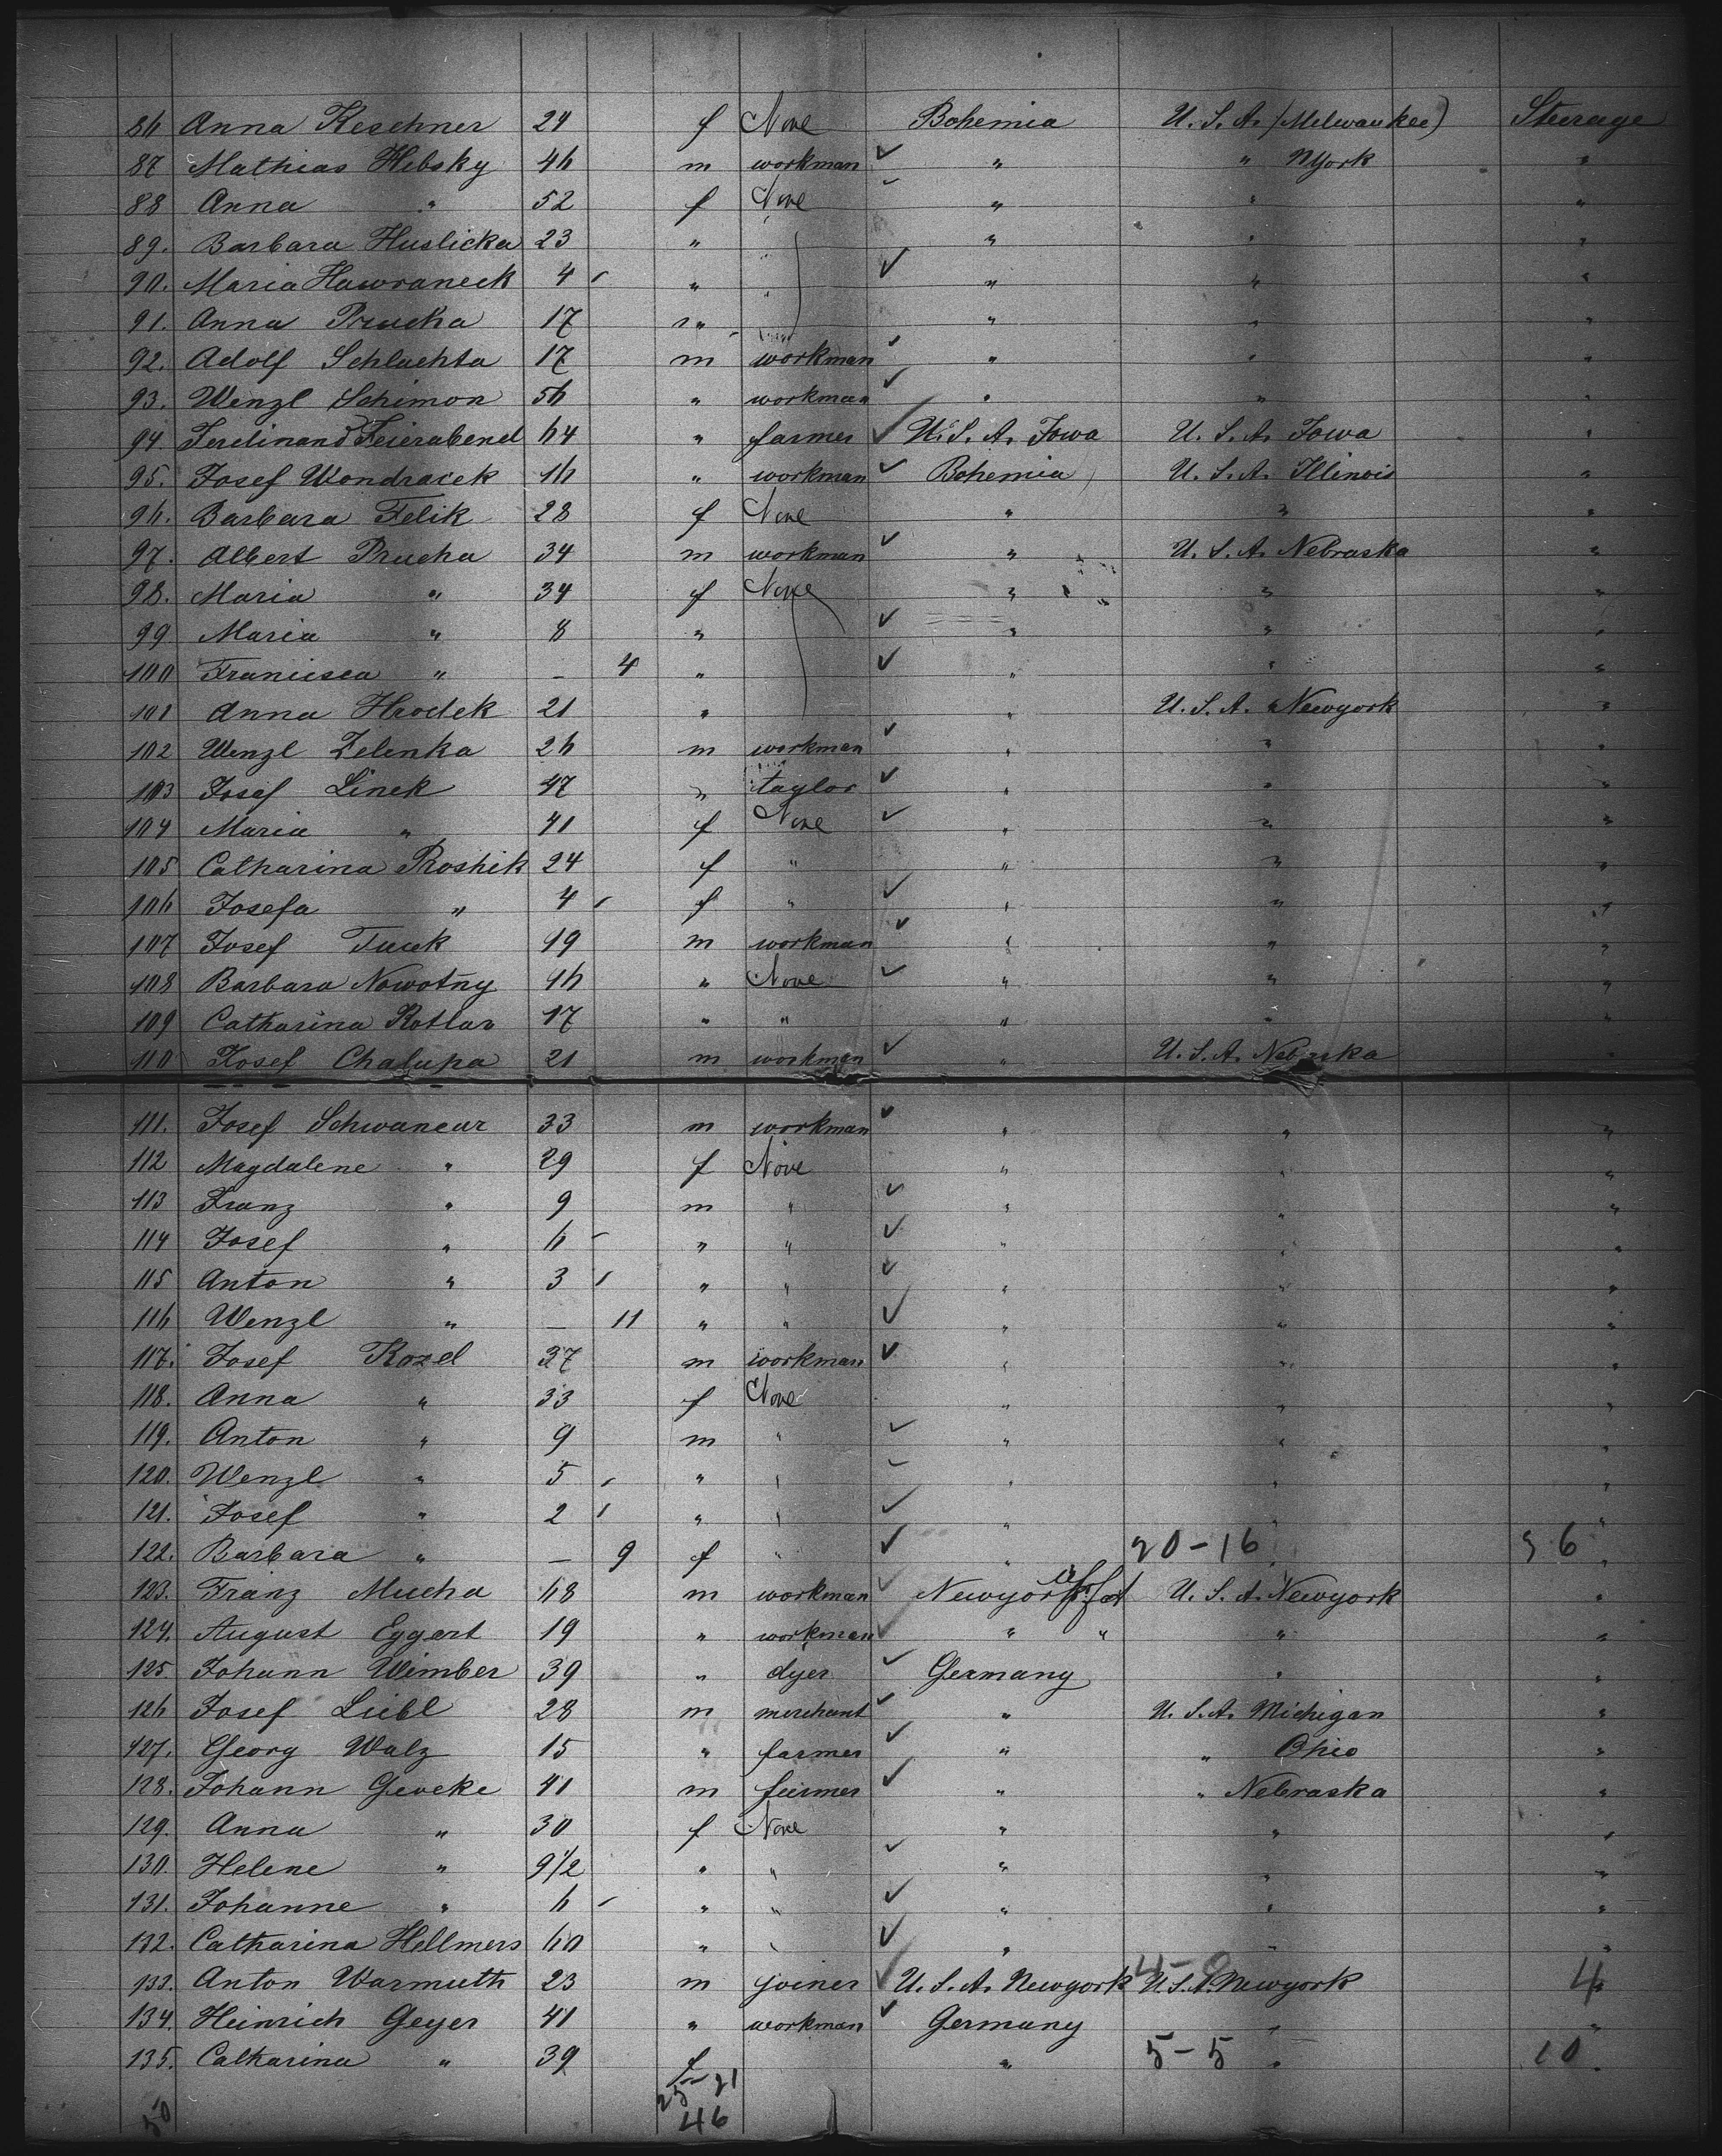 86 Anna Keschner 24 f None Bohemia U. S. A. (Melwaukee) Steerage
87 Mathias Hibsky 46 m workman " " NYork "
88 Anna " 52 f None " " "
89. Barbara Huslicka 23 " " " "
90. Maria Hawraneck 4 " " " "
91. Anna Prucha 17 " " " "
92. Adolf Schlachta 17 m workman " " "
93. Wenzl Schimon 56 " workman " " "
94. Ferdinand Feierabend 64 " farmer U. S. A. Iowa U. S. A. Iowa "
95. Josef Wondracek 16 " workman Bohemia U. S. A. Illinois "
96. Barbara Felik 28 f None " " "
97. Albert Prucha 34 m workman " U. S. A. Nebraska "
98. Maria " 34 f None " " "
99 Maria " 8 " " " "
100 Francisca " – 4 " " " "
101 Anna Hrodek 21 " " U. S. A. Newyork "
102 Wenzl Zelenka 26 m workman " " "
103 Josef Linek 47 " taylor " " "
104 Maria " 41 f None " " "
105 Catharina Proshik 24 f " " " "
106 Josefa " 4 f " " " "
107 Josef Tucek 19 m workman " " "
108 Barbara Nowotny 46 " None " " "
109 Catharina Kotlar 17 " " " " "
110 Josef Chalupa 21 m workman " U. S. A. Nebraska "
111. Josef Schwancar 33 m workman " " "
112 Magdalene " 29 f None " " "
113 Franz " 9 m " " " "
114 Josef " 6 " " " " "
115 Anton " 3 " " " " "
116 Wenzl " – 11 " " " " "
117. Josef Kozel 37 m workman " " "
118. Anna " 33 f None " " "
119. Anton " 9 m " " " "
120. Wenzl " 5 " " " " "
121. Josef " 2 " " " " "
122. Barbara " – 9 f " " 20-16 " 36 "
123. Franz Mucha 68 m workman Newyork U. S. A. Newyork "
124. August Eggert 19 " workman " " " "
125 Johann Wimber 39 " dyer Germany " "
126 Josef Liebl 28 m merchant " U. S. A. Michigan "
127. Georg Walz 15 " farmer " " Ohio "
128. Johann Geveke 41 m farmer " " Nebraska "
129. Anna " 30 f None " " "
130. Helene " 9 1/2 " " " " "
131. Johanne " 6 " " " " "
132. Catharina Hellmers 60 " " " " "
133. Anton Warmuth 23 m joiner U. S. A. Newyork U. S. A. Newyork 4 "
134. Heinrich Geyer 41 " workman Germany " "
135. Catharina " 39 f " 5-5 " 10 "
25-21
50 46